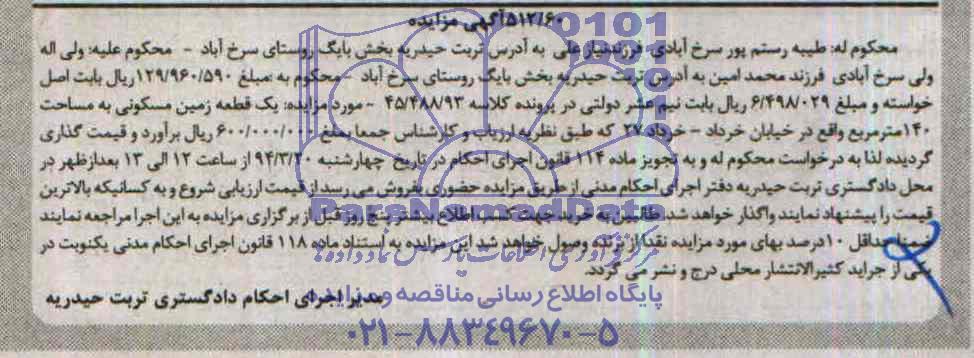 ۵۱۲/۶۰آگهی مزایده
محکوم له: طیبه رستم پور سرخ آبادی فرزندنیاز علی به آدرس تربت حیدریه بخش بایگ روستای سرخ آباد - محکوم علیه: ولی اله
ولی سرخ آبادی فرزند محمد امین به آدرس تربت حیدریه بخش بایگ روستای سرخ آباد -محکوم به :مبلغ ۱۲۹/۹۶۰/۵۹۰ریال بابت اصل
خواسته و مبلغ ۶/۴۹۸/۰۲۹ ریال بابت نیم عشر دولتی در پرونده کلاسه ۴۵/۴۸۸/۹۳ - مورد مزایده: یک قطعه زمین مسکونی به مساحت
۱۴۰مترمربع واقع در خیابان خرداد - خرداد ۲۷ که طبق نظریه ارزیاب و کارشناس جمعا بمبلغ ۶۰۰/۰۰۰/۰۰۰ ریال برآورد و قیمت گذاری
گردیده لذا به درخواست محکوم له و به تجویز ماده ۱۱۴ قانون اجرای احکام در تاریخ چهارشنبه ۹۴/۳/۲۰ از ساعت ۱۲ الی ۱۳ بعدازظهر در
محل دادگستری تربت حیدریه دفتر اجرای احکام مدنی از طریق مزایده حضوری بفروش می رسد از قیمت ارزیابی شروع و به کسانیکه بالاترین
قیمت را پیشنهاد نمایند واگذار خواهد شد. طالبین به خرید جهت کسب اطلاع بیشتر پنج روز قبل از برگزاری مزایده به این اجرا مراجعه نمایند
ضمنا حداقل ۱۰درصد بهای مورد مزایده نقدا از برنده وصول خواهد شد این مزایده به استناد ماده ۱۱۸ قانون اجرای احکام مدنی یکنوبت در
یکی از جراید کثیرالانتشار محلی درج و نشر می گردد.
مدیر اجرای احکام دادگستری تربت حیدریه
ParsNamadData
مرکز فرآوری اطلاعات پارس نماد داده ها
پایگاه اطلاع رسانی مناقصه و مزایده
۰۲۱-۸۸۳۴۹۶۷۰-۵